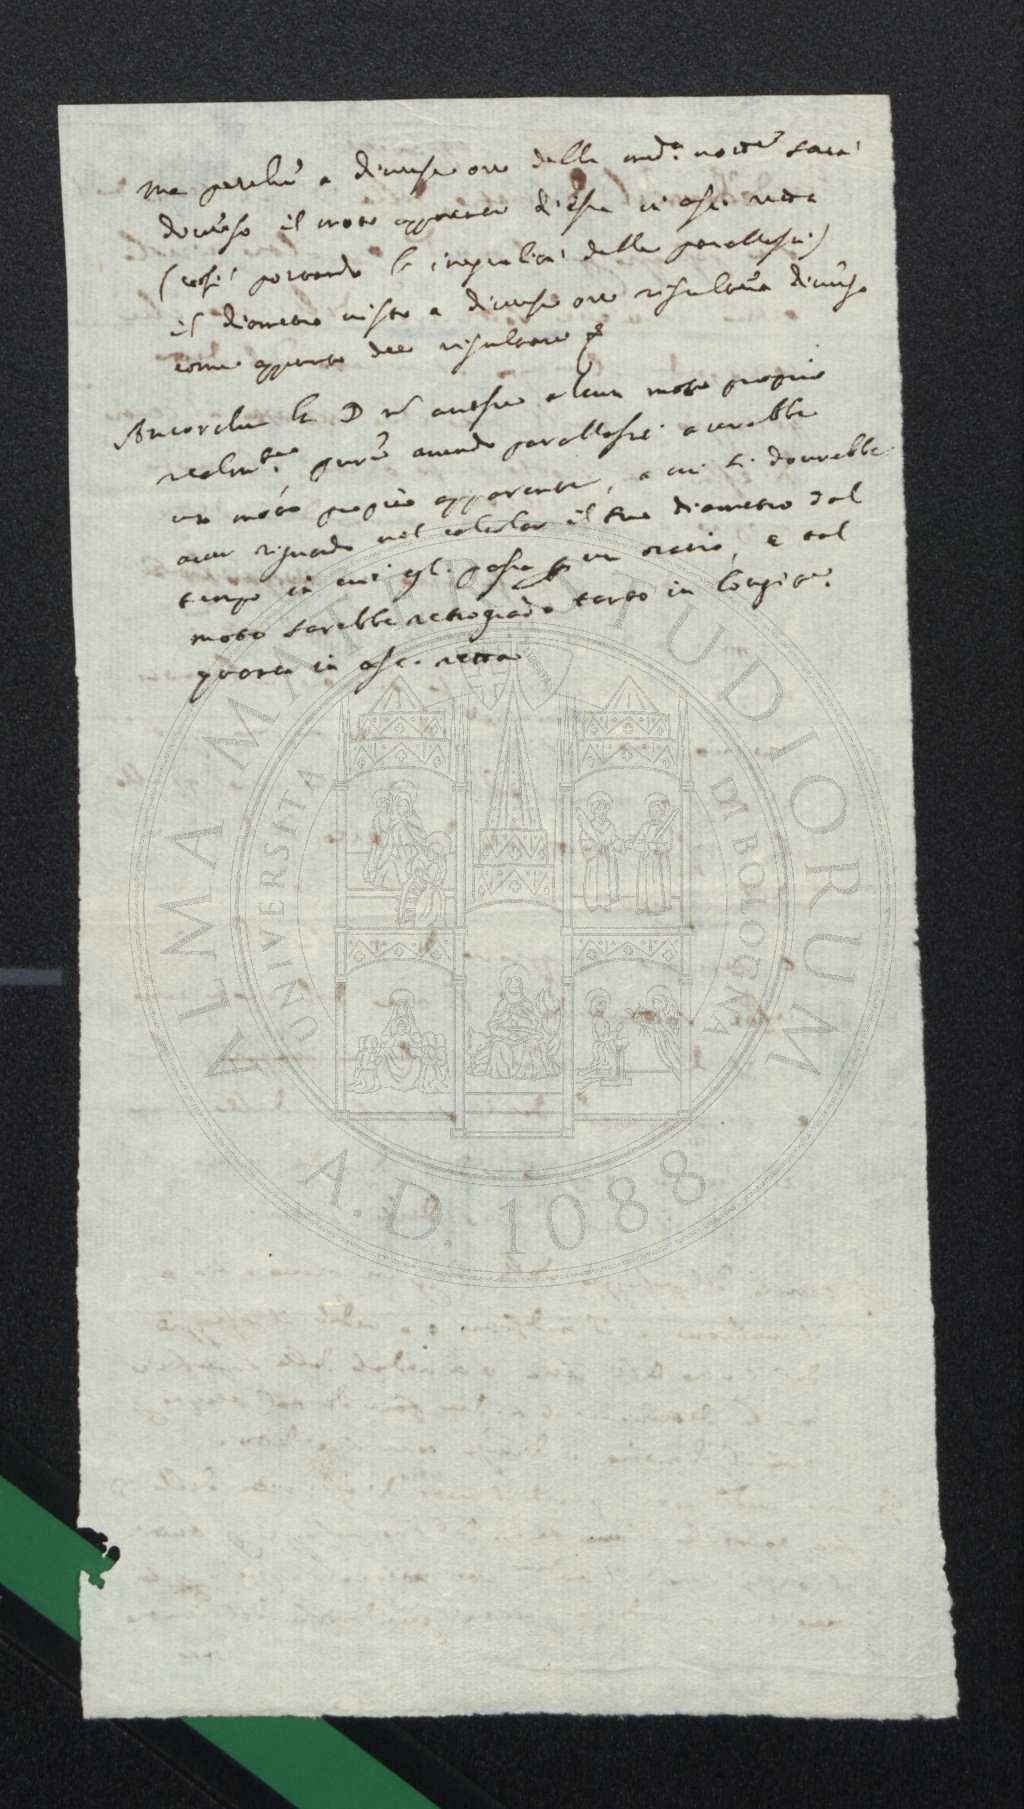 ma perche a diverse ore della med.a notte sarà
diverso il moto apparente di essa in asc. retta
(così portando la inegualità della parallasse)
il diametro visto a diverse ore risulterà diverso
come appunto dee risultare
Ancorche la D nō avesse alcun moto proprio
realmte. pure avendo parallasse averebbe
un moto proprio apparente, a cui si dovrebbe
aver riguardo nel calcolar il suo diametro dal
tempo in cui egli passa per un orario, e tal
moto sarebbe retrogrado tanto in longite.
quanto in asc. retta
ALMA MATER STUDIORUM
UNIVERSITÀ DI BOLOGNA
A.D. 1088